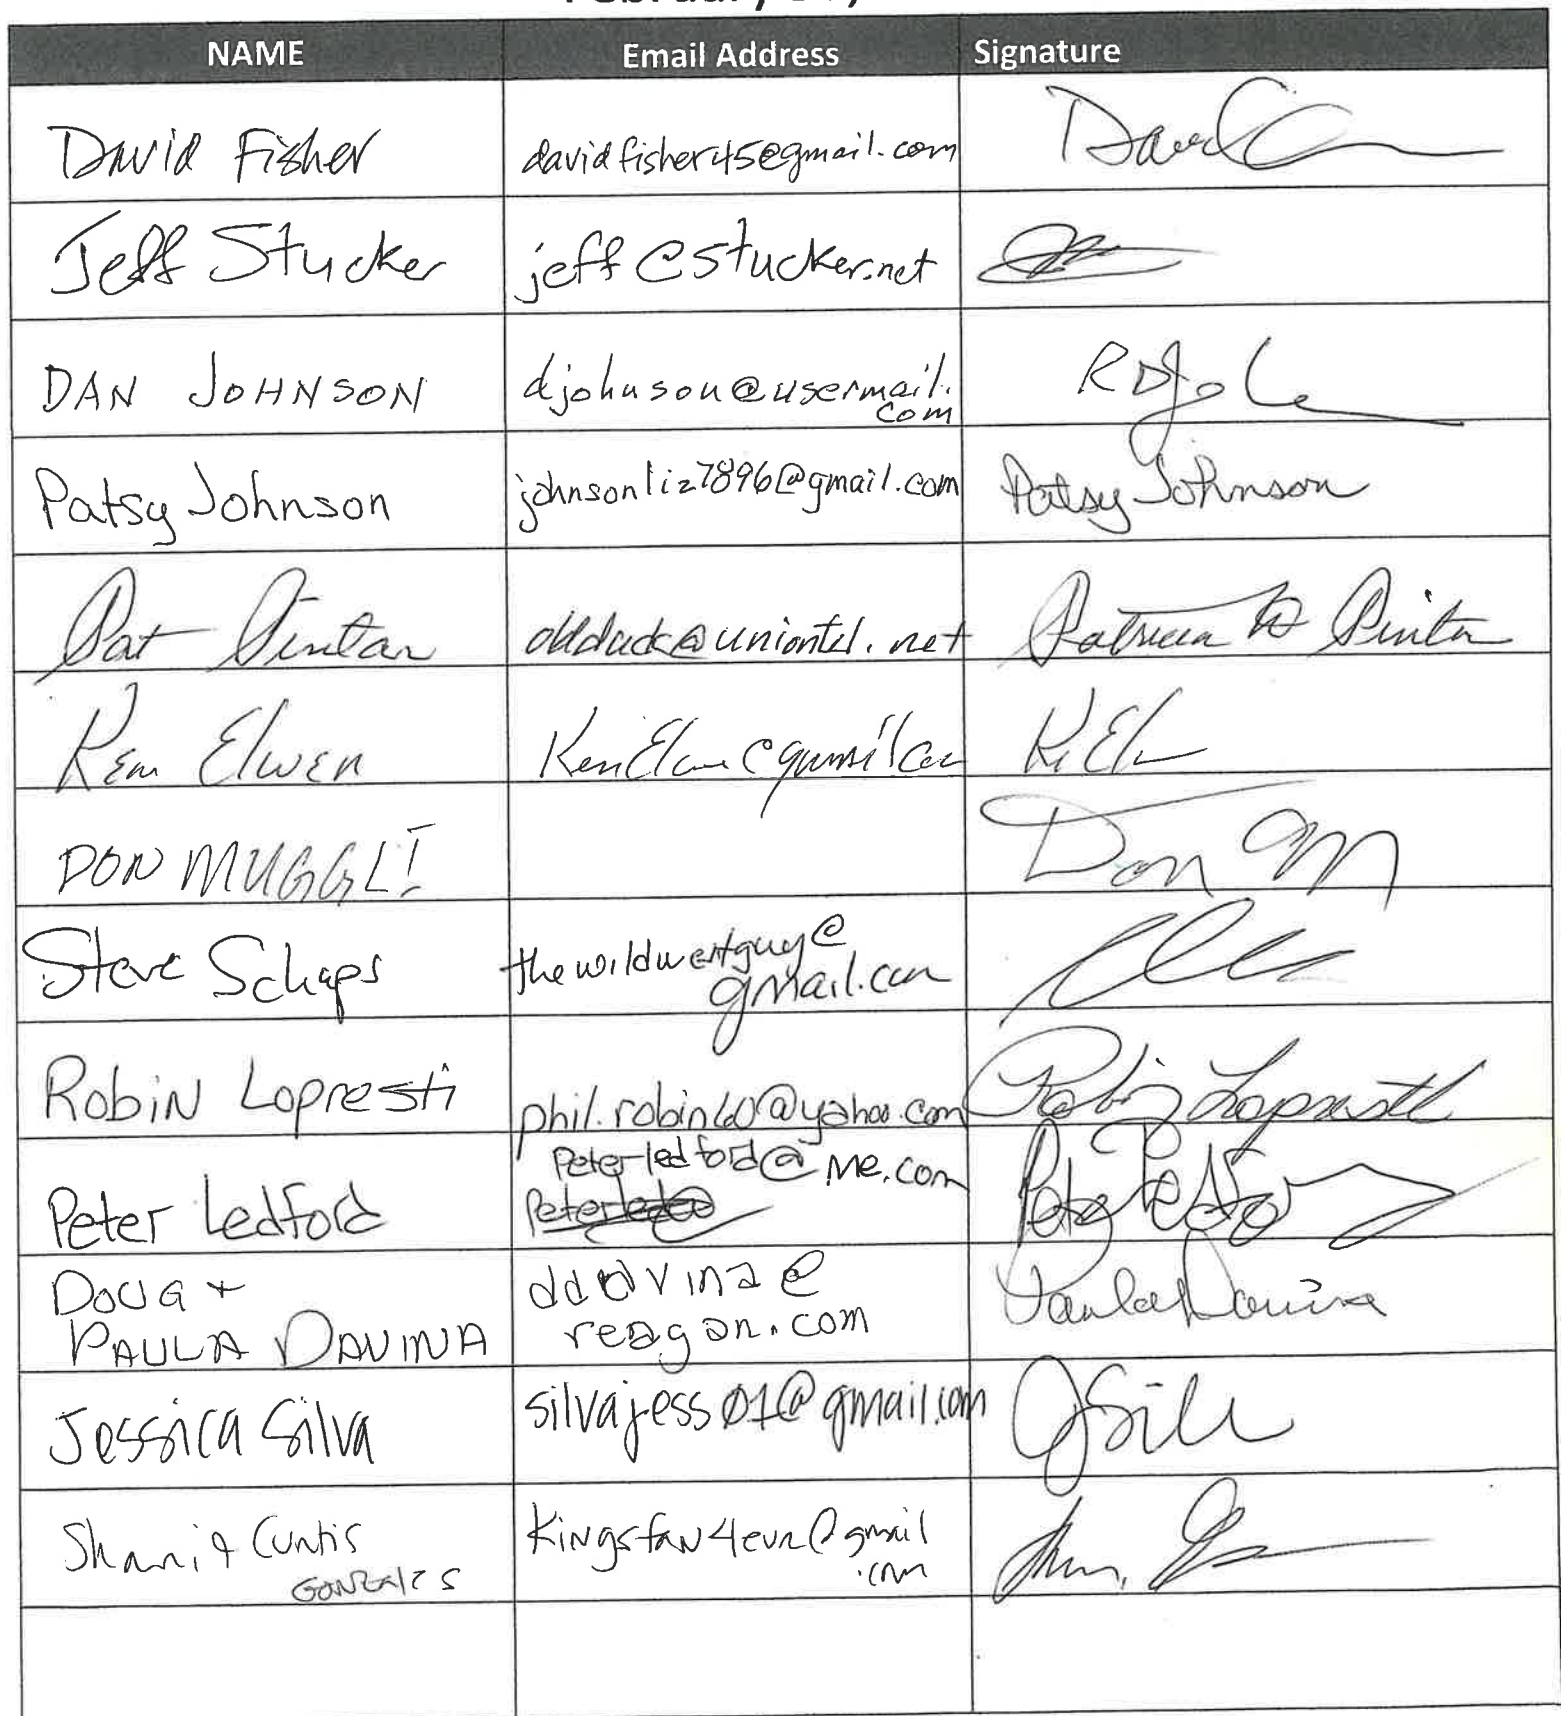 NAME Email Address Signature
David Fisher davidfisher45@gmail.com
Jeff Stucker jeff@stucker.net
DAN JOHNSON djohnson@usermail.
com
Patsy Johnson johnsonliz7896@gmail.com Patsy Johnson
Pat Pintar @uniontel.net Patricia Pintar
Ken Elwen
DON MUGGLI Don M
Steve Schaps thewildwestguy@
gmail.com
Robin Lopresti phil.robin60@yahoo.com Robin Lopresti
peterledford@me.com
Peter Ledford Peter Ledford
DOUG + ddavina@
PAULA DAVINA reagan.com Paula Davina
Jessica Silva silvajess01@gmail.com JSilva
Shani & Curtis kingsfan4evr@gmail
GONZALES .com